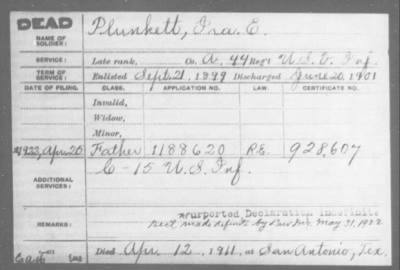 DEAD
NAME OF SOLDIER: Plunkett, Ira E.
SERVICE: Late rank, Co. A, 44 Reg't U.S.V. Inf.
TERM OF SERVICE: Enlisted Sept. 21, 1899 Discharged June 20, 1901
DATE OF FILING. CLASS. APPLICATION NO. LAW. CERTIFICATE NO.
Invalid,
Widow,
Minor,
Apr. 20 Father 1188620 928,607
ADDITIONAL SERVICES: C-15 U.S. Inf.
Purported Declaration Indefinite
REMARKS: made definite by May 31, 1922
Died Apr. 12, 1911, at San Antonio, Tex.